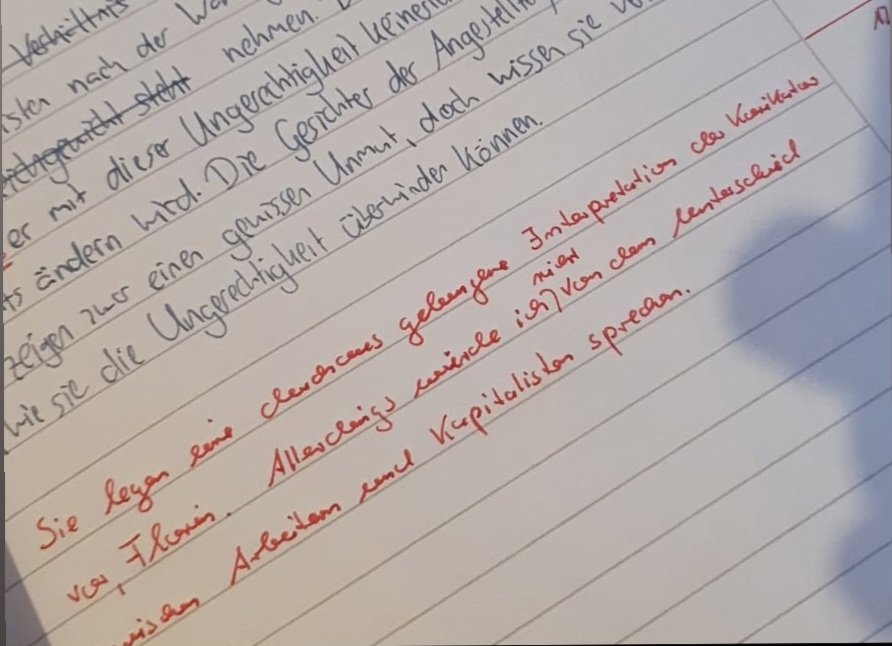 Verhältnis
nach der
steht nehmen.
er mit dieser Ungerechtigkeit
ändern wird. Die Gesichter der
zeigen zwar einen gewissen Unmut, doch wissen sie
wie sie die Ungerechtigkeit überwinden können.
Sie legen eine durchaus gelungene Interpretation der Karikatur
vor, Florin. Allerdings würde ich nicht von dem Unterschied
Arbeitern und Kapitalisten sprechen.